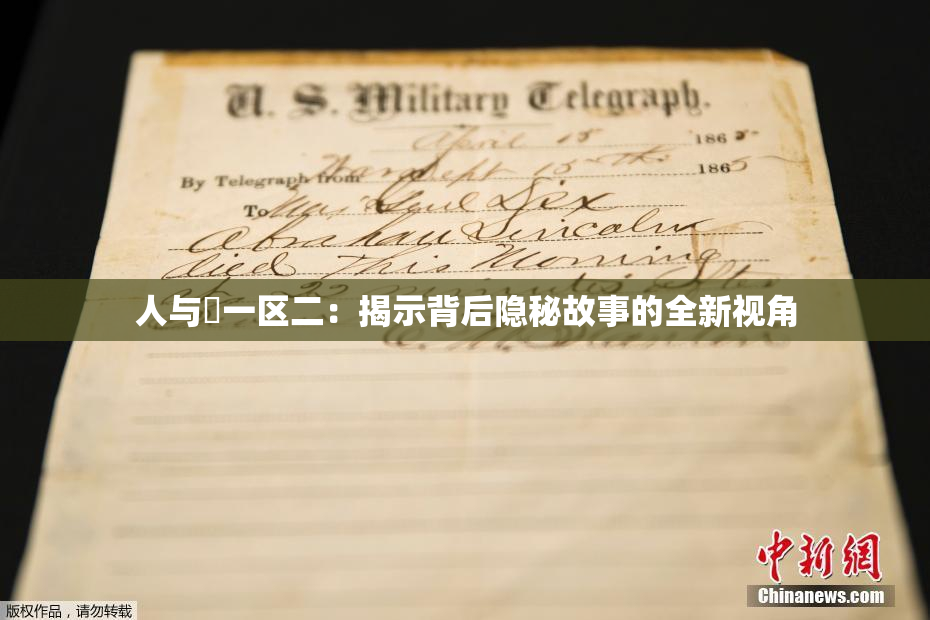 U. S. Military Telegraph.
April 15 1865
By Telegraph from War Dept 15th 1865
To Maj Genl Dix
Abraham Lincoln
died This Morning
22 minutes after
人与一区二：揭示背后隐秘故事的全新视角
中新网
Chinanews.com
版权作品，请勿转载